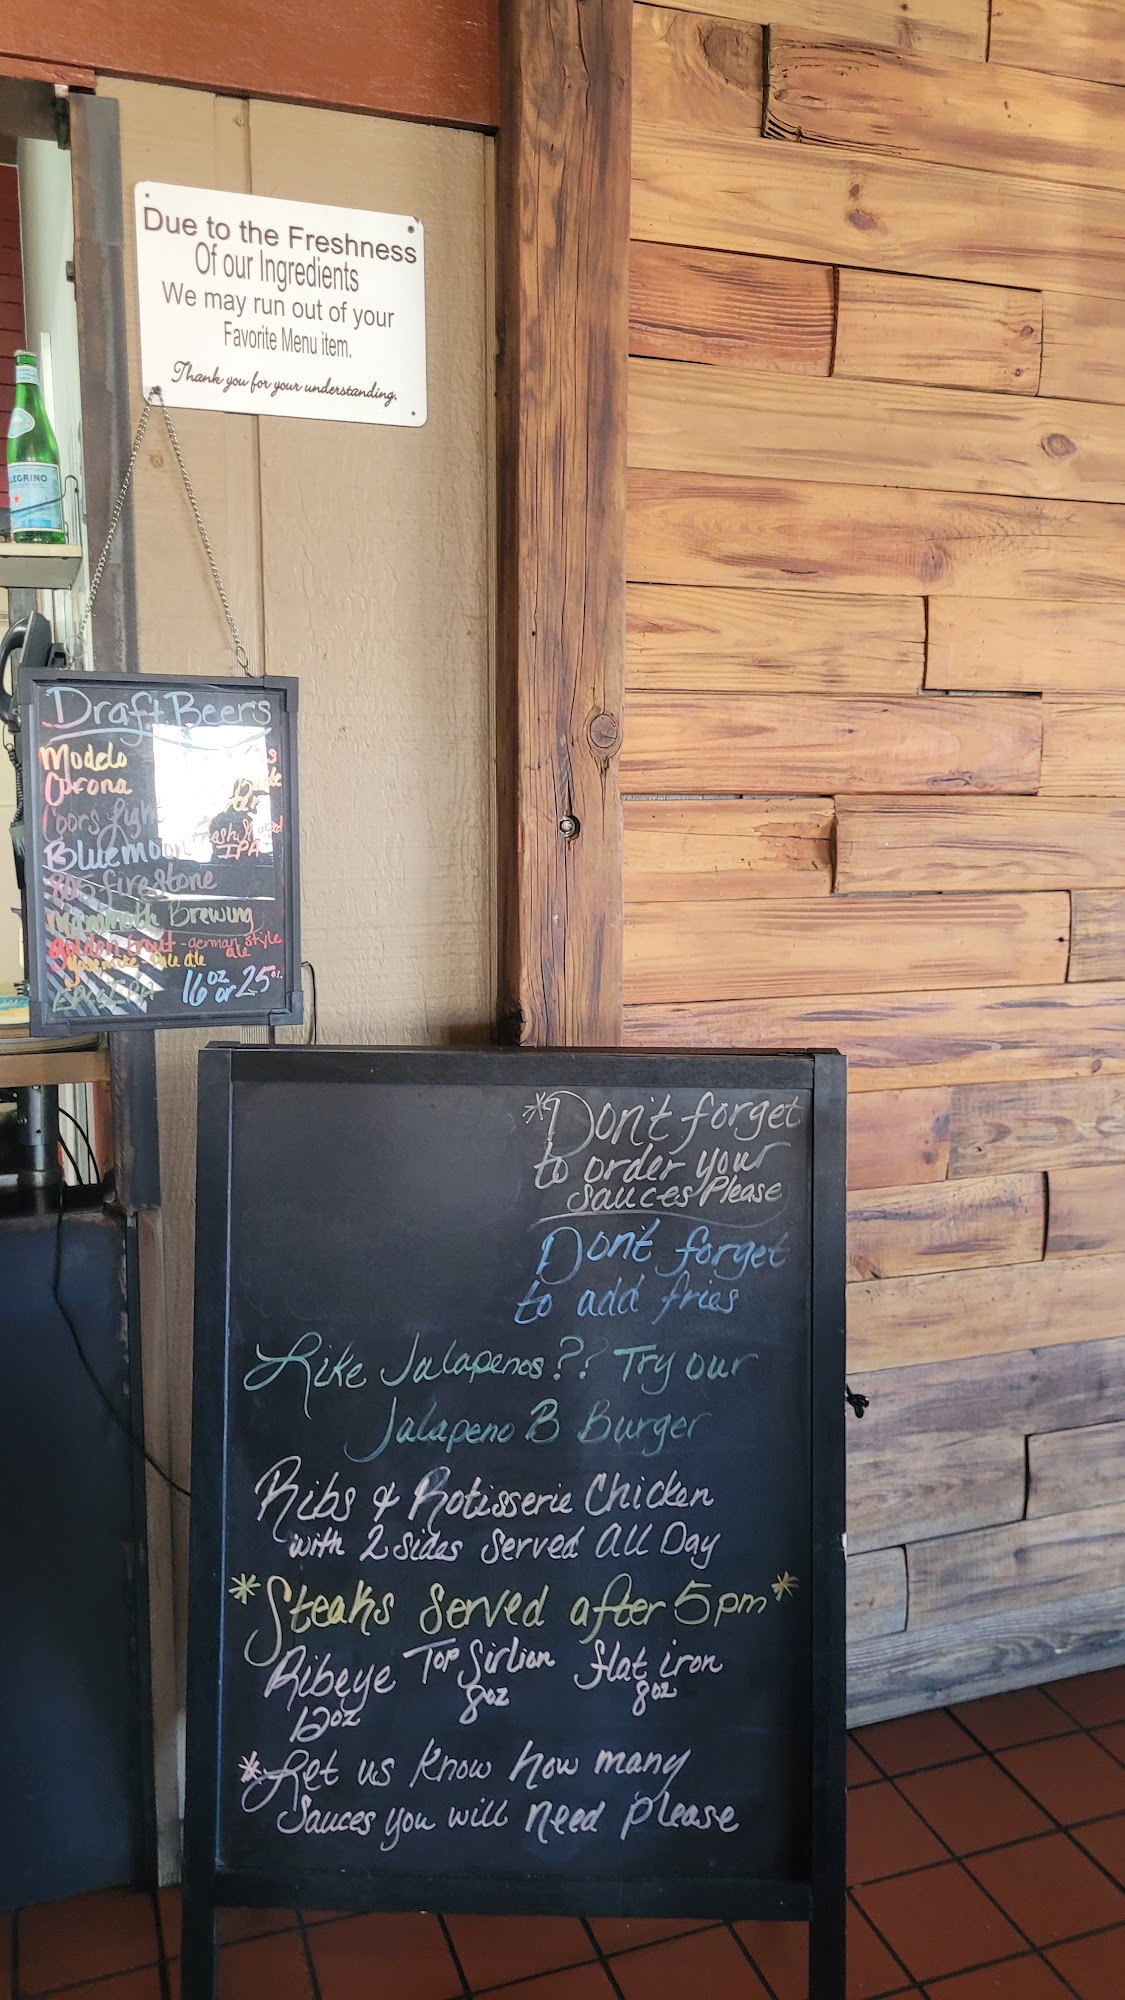 Due to the Freshness
Of our Ingredients
We may run out of your
Favorite Menu item.
Thank you for your understanding.
Draft Beers
Modelo
Corona
Coors Light
Bluemoon
IPA
805 firestone
Mammoth Brewing
Golden trout - german style ale
Yosemite - Pale ale
16oz or 25oz.
*Don't forget
to order your
sauces Please
Don't forget
to add fries
Like Jalapenos?? Try our
Jalapeno B Burger
Ribs & Rotisserie Chicken
with 2 sides Served All Day
*Steaks Served after 5pm*
Ribeye Top Sirlion flat iron
12oz 8oz 8oz
*Let us know how many
Sauces you will need please